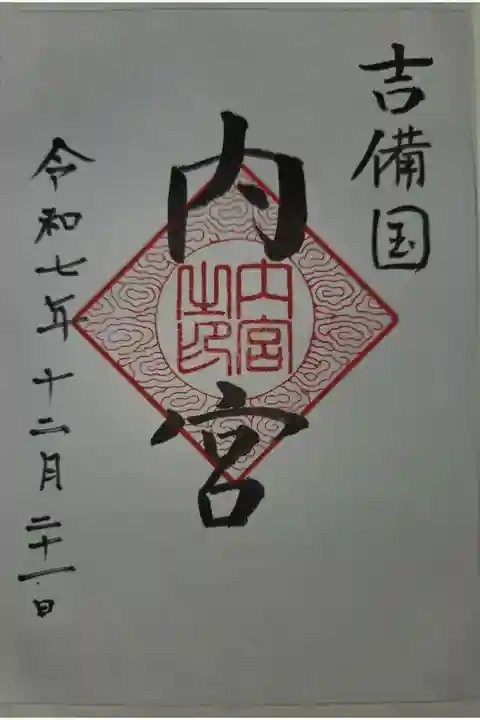 吉備国
内宮
内宮之印
令和七年十二月二十一日